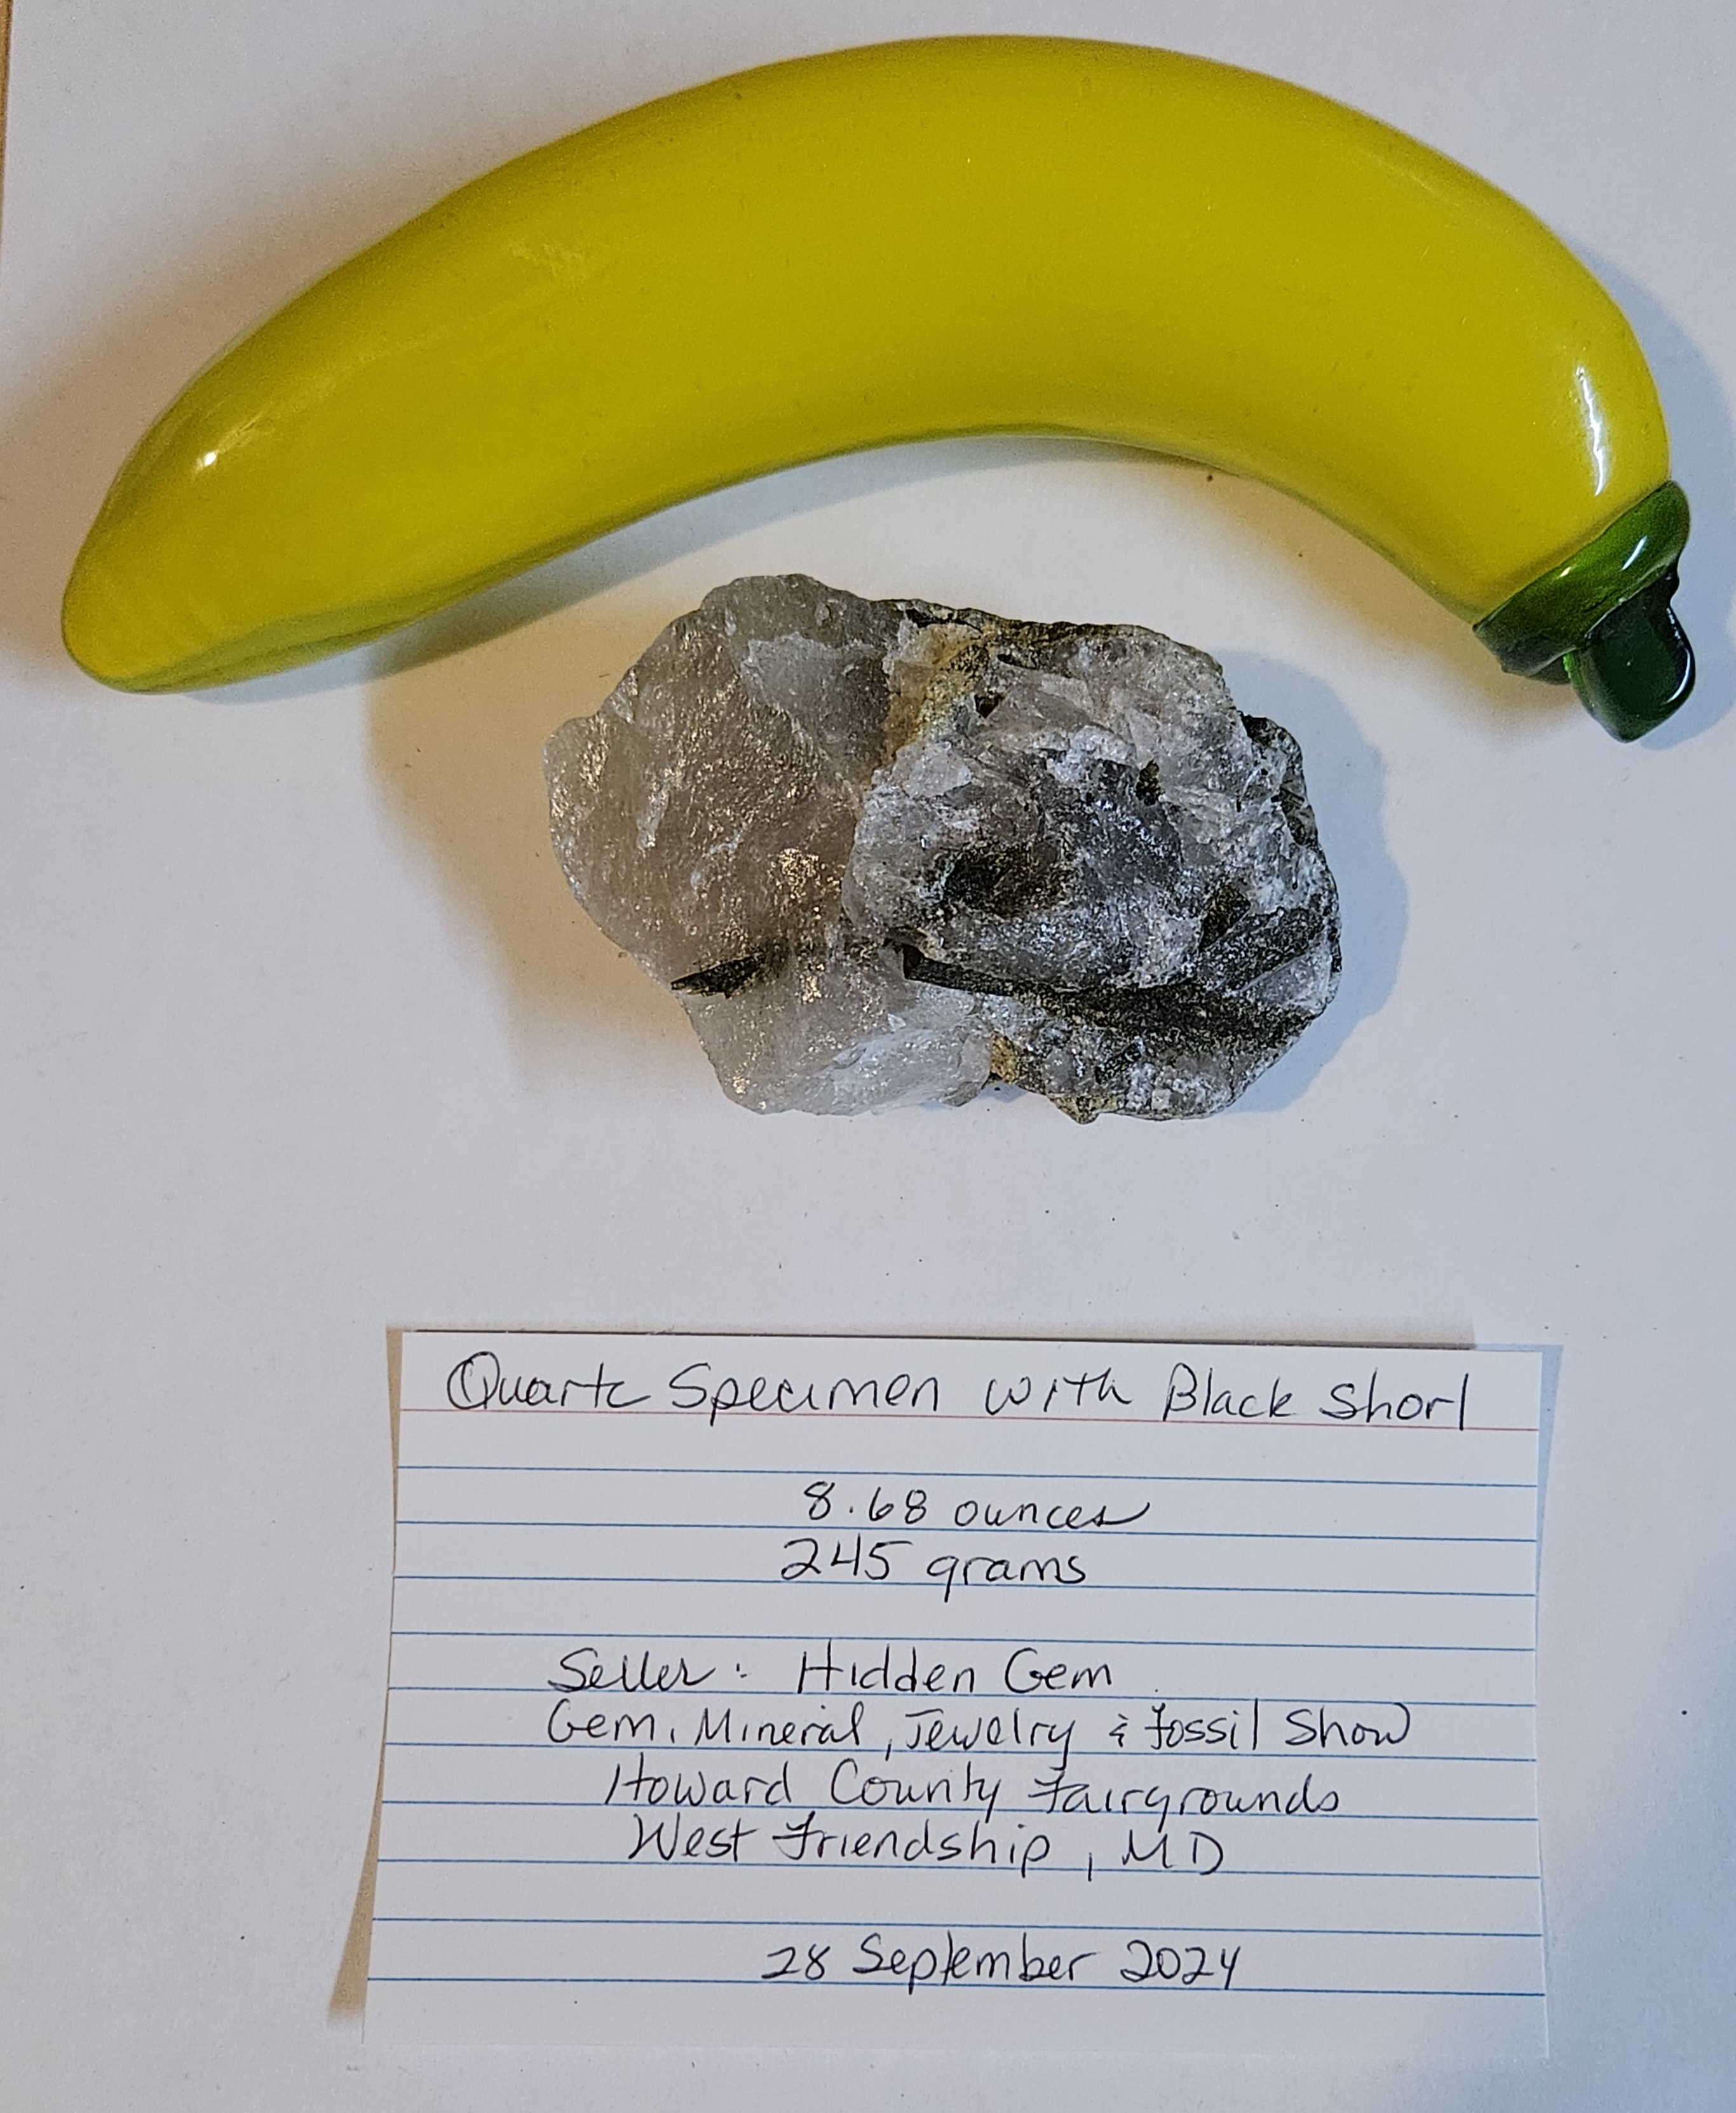 Quartz Specimen with Black Shorl
8.68 ounces
245 grams
Seller: Hidden Gem
Gem, Mineral, Jewelry & Fossil Show
Howard County Fairgrounds
West Friendship, MD
28 September 2024